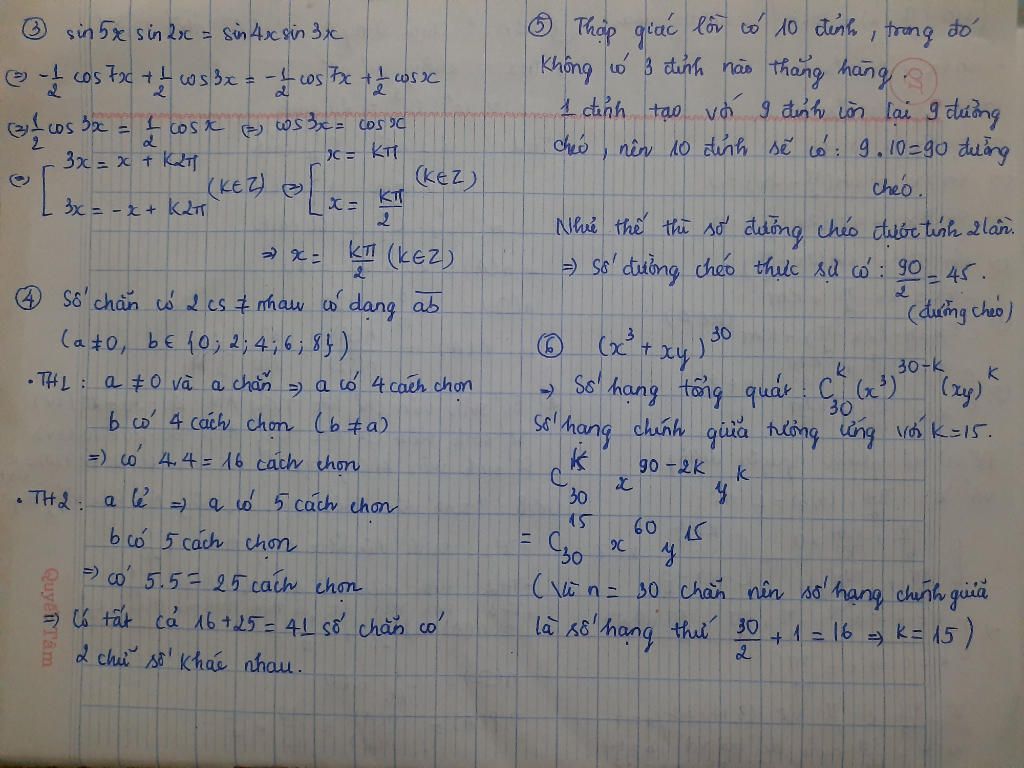 ③ sin5x sin2x = sin4x sin3x
(=) -1/2 cos7x + 1/2 cos3x = -1/2 cos7x + 1/2 cosx
(=) 1/2 cos3x = 1/2 cosx (=) cos3x = cosx
(=) [ 3x = x + k2π
3x = -x + k2π (k∈Z) (=) [ x = kπ
x = kπ/2 (k∈Z)
⇒ x = kπ/2 (k∈Z)
④ Số chẵn có 2 cs ≠ nhau có dạng ab
(a≠0, b∈{0; 2; 4; 6; 8})
• TH1: a ≠0 và a chẵn ⇒ a có 4 cách chọn
b có 4 cách chọn (b≠a)
⇒ có 4.4 = 16 cách chọn
• TH2: a lẻ ⇒ a có 5 cách chọn
b có 5 cách chọn
⇒ có 5.5 = 25 cách chọn
⇒ Có tất cả 16+25 = 41 số chẵn có
2 chữ số khác nhau.
Quyết Tâm
⑤ Thập giác lồi có 10 đỉnh, trong đó
không có 3 đỉnh nào thẳng hàng.
1 đỉnh tạo với 9 đỉnh còn lại 9 đường
chéo, nên 10 đỉnh sẽ có: 9.10=90 đường
chéo.
Như thế thì số đường chéo được tính 2 lần.
⇒ Số đường chéo thực sự có: 90/2 = 45.
(đường chéo)
⑥ (x³ + xy)³⁰
⇒ Số hạng tổng quát: C₃₀ᵏ (x³)³⁰⁻ᵏ (xy)ᵏ
Số hạng chính giữa tương ứng với k=15.
C₃₀ᵏ x⁹⁰⁻²ᵏ yᵏ
= C₃₀¹⁵ x⁶⁰ y¹⁵
(Vì n = 30 chẵn nên số hạng chính giữa
là số hạng thứ 30/2 + 1 = 16 ⇒ k = 15)